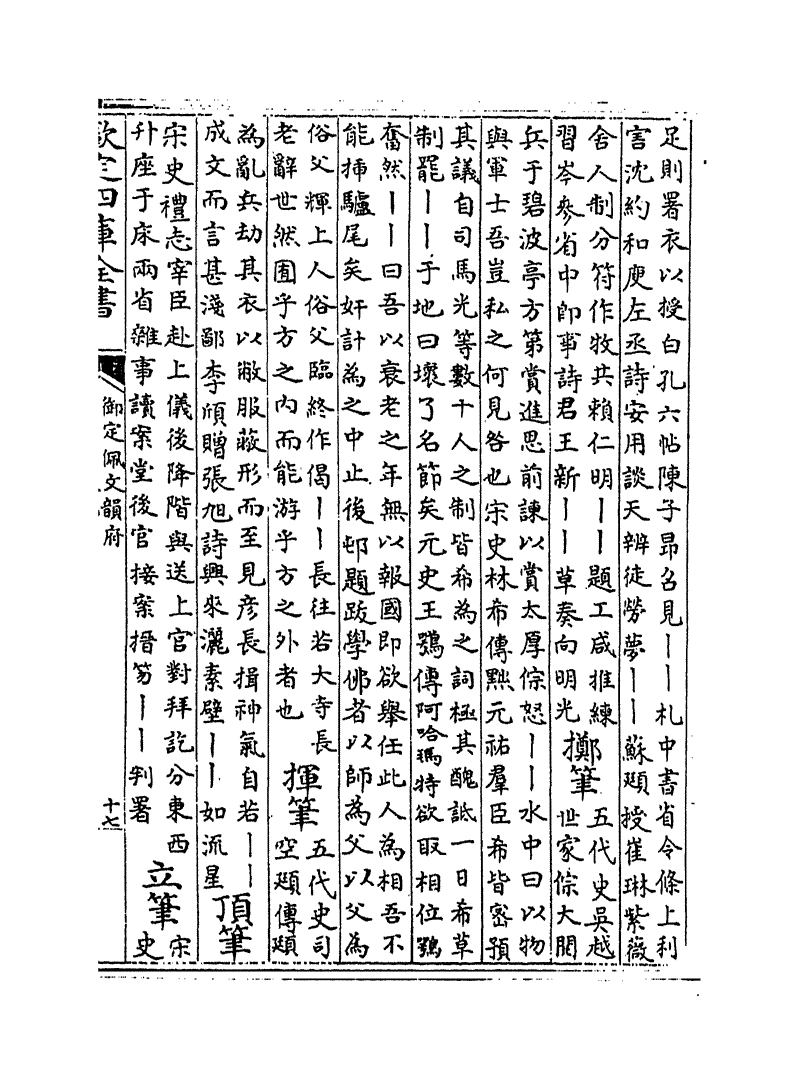 足則署衣以授白孔六帖陳子昂召見丨丨札中書省令條上利
害沈約和庾左丞詩安用談天辨徒勞夢丨丨蘇頲授崔琳紫薇
舍人制分符作牧共賴仁明丨丨題工咸推練
習岑參省中即事詩君王新丨丨草奏向明光
擲筆
五代史吳越
世家倧大閱
兵于碧波亭方第賞進思前諫以賞太厚倧怒丨丨水中曰以物
與軍士吾豈私之何見咎也宋史林希傳黜元祐羣臣希皆密預
其議自司馬光等數十人之制皆希為之詞極其醜詆一日希草
制罷丨丨于地曰壞了名節矣元史王鶚傳阿哈瑪特欲取相位鶚
奮然丨丨曰吾以衰老之年無以報國即欲舉任此人為相吾不
能揷驢尾矣奸計為之中止後邨題跋學佛者以師為父以父為
俗父輝上人俗父臨終作偈丨丨長往若大寺長
老辭世然囿乎方之内而能游乎方之外者也
揮筆
五代史司
空頲傳頲
為亂兵劫其衣以敝服蔽形而至見彥長揖神氣自若丨丨
成文而言甚淺鄙李頎贈張旭詩興來灑素壁丨丨如流星
頂筆
宋史禮志宰臣赴上儀後降階與送上官對拜訖分東西
升座于床兩省雜事讀案堂後官接案搢笏丨丨判署
立筆
宋
史
欽定四庫全書
御定佩文韻府
十七